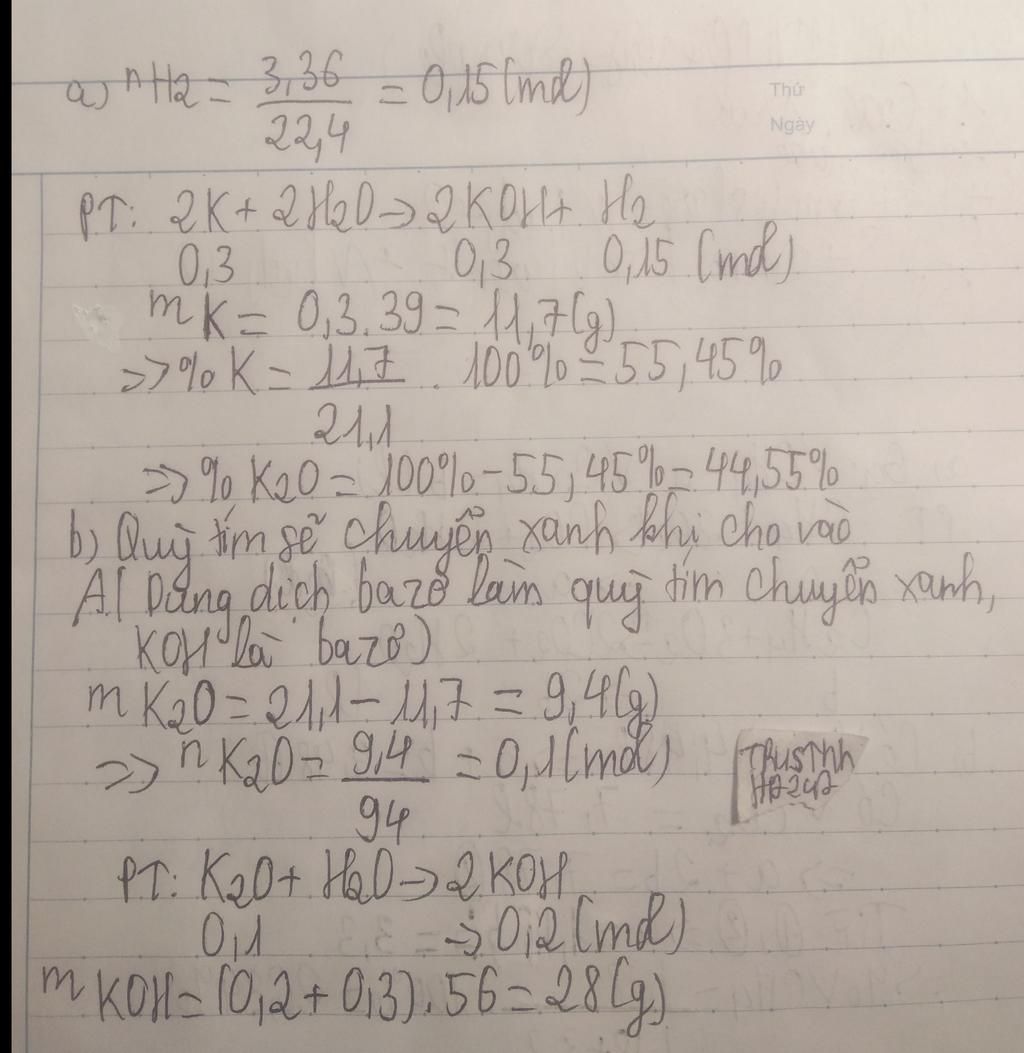 a) nH2 = 3,36 / 22,4 = 0,15 (mol)
Thứ
Ngày
PT: 2K + 2H2O → 2KOH + H2
0,3 0,3 0,15 (mol)
mK = 0,3.39 = 11,7(g)
=> %K = 11,7 / 21,1 . 100% = 55,45%
=> % K2O = 100% - 55,45% = 44,55%
b) Quỳ tím sẽ chuyển xanh khi cho vào
A( Dung dịch bazơ làm quỳ tím chuyển xanh,
KOH là bazơ)
mK2O = 21,1 - 11,7 = 9,4(g)
=> nK2O = 9,4 / 94 = 0,1 (mol)
PT: K2O + H2O → 2KOH
0,1 → 0,2 (mol)
mKOH = (0,2 + 0,3).56 = 28(g)